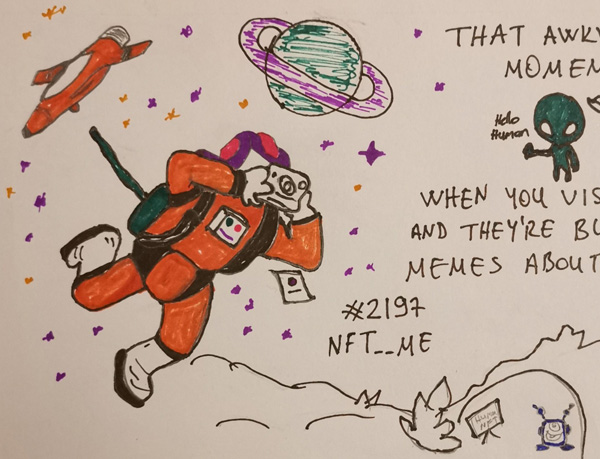 THAT AWK
MOMEN
Hello
Human
WHEN YOU VIS
AND THEY'RE BU
MEMES ABOUT
#2197
NFT__ME
HUMAN
NFT